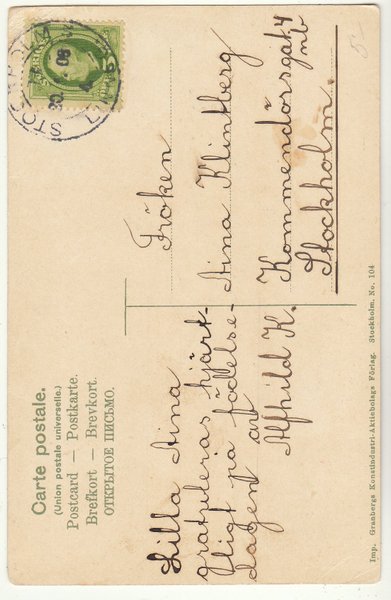 Carte postale.
(Union postale universelle.)
Postcard — Postkarte.
Brefkort — Brevkort.
ОТКРЫТОЕ ПИСЬМО.
Lilla Aina
gratuleras hjärt-
ligt på födelse-
dagen af
Alfhild K.
Fröken
Aina Klintberg
Kommendörsgat. 4
nb
Stockholm.
STOCKHOLM
08
5-
Imp. Granbergs Konstindustri-Aktiebolags Förlag. Stockholm. No. 104